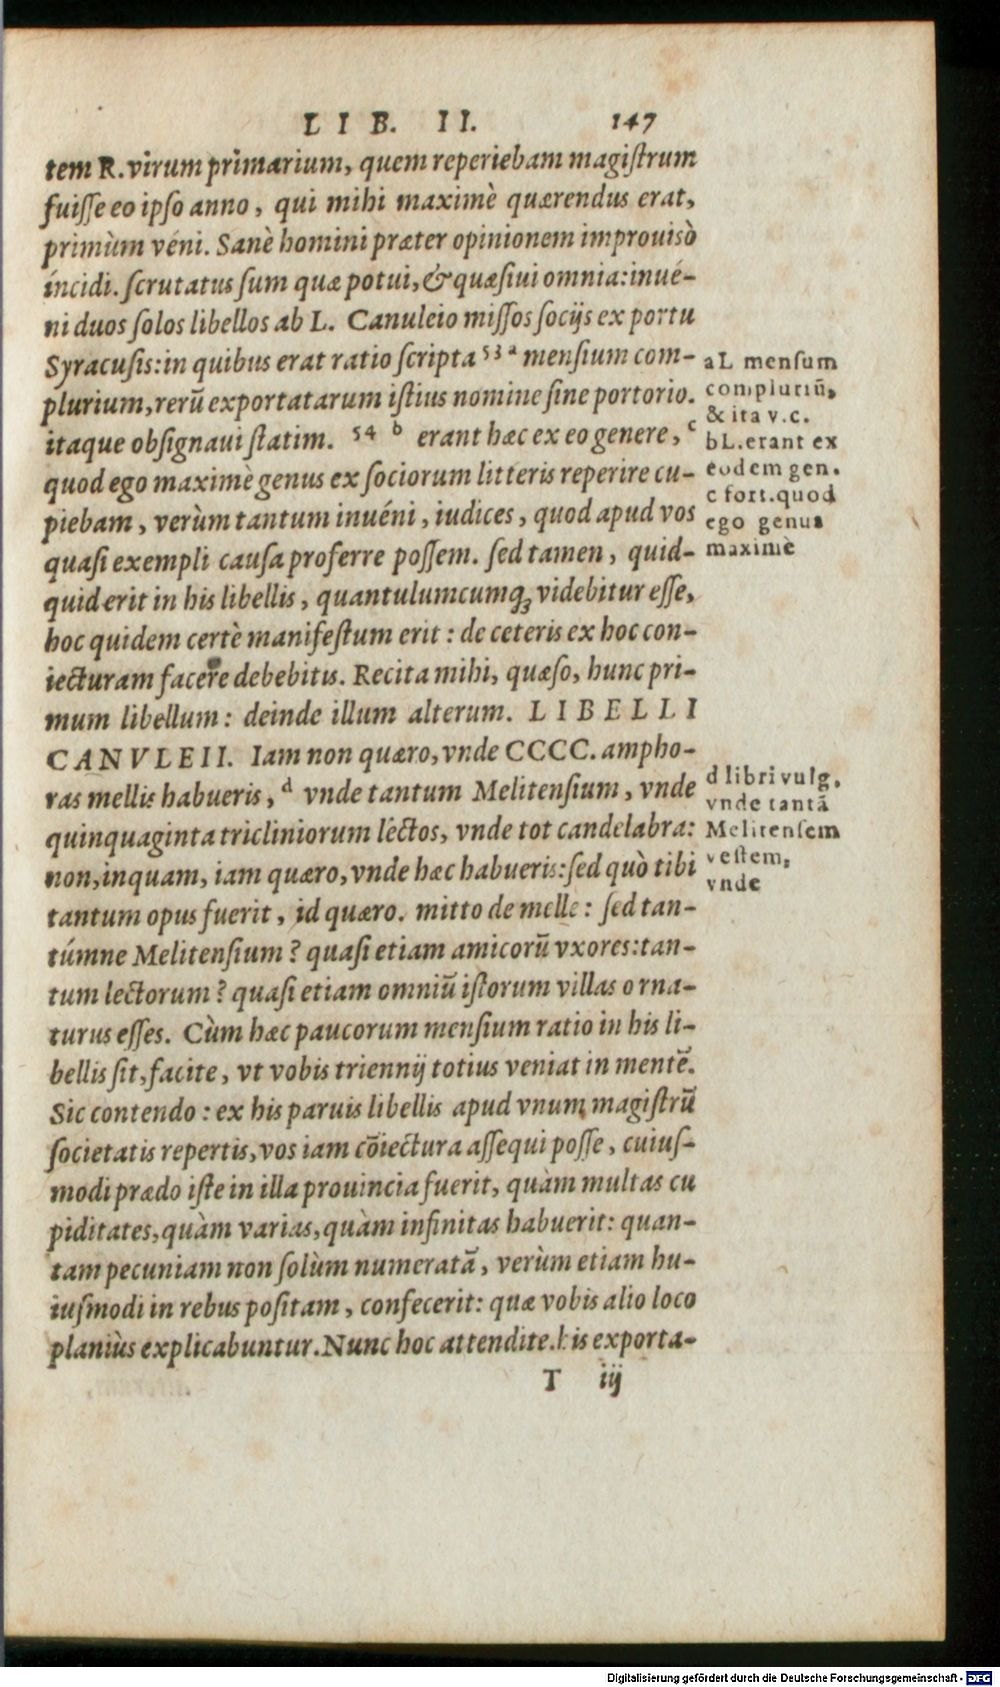 LIB. II. 147
tem R. virum primarium, quem reperiebam magistrum
fuisse eo ipso anno, qui mihi maximè quærendus erat,
primùm véni. Sanè homini præter opinionem improuisò
íncidi. scrutatus sum quæ potui, & quæsiui omnia: inué-
ni duos solos libellos ab L. Canuleio missos socijs ex portu
Syracusis: in quibus erat ratio scripta 53 a mensium com-
plurium, rerū exportatarum istius nomine sine portorio.
itaque obsignaui statim. 54 b erant hæc ex eo genere, c
quod ego maximè genus ex sociorum litteris reperire cu-
piebam, verùm tantum inuéni, iudices, quod apud vos
quasi exempli causa proferre possem. sed tamen, quid-
quid erit in his libellis, quantulumcumq; videbitur esse,
hoc quidem certè manifestum erit: de ceteris ex hoc con-
iecturam facere debebitis. Recita mihi, quæso, hunc pri-
mum libellum: deinde illum alterum. LIBELLI
CANVLEII. Iam non quæro, vnde CCCC. ampho-
ras mellis habueris, d vnde tantum Melitensium, vnde
quinquaginta tricliniorum lectos, vnde tot candelabra:
non, inquam, iam quæro, vnde hæc habueris: sed quò tibi
tantum opus fuerit, id quæro. mitto de melle: sed tan-
túmne Melitensium? quasi etiam amicorū vxores: tan-
tum lectorum? quasi etiam omniū istorum villas orna-
turus esses. Cùm hæc paucorum mensium ratio in his li-
bellis sit, facite, vt vobis triennij totius veniat in mentē.
Sic contendo: ex his paruis libellis apud vnum magistrū
societatis repertis, vos iam cōiectura assequi posse, cuius-
modi prædo iste in illa prouincia fuerit, quàm multas cu
piditates, quàm varias, quàm infinitas habuerit: quan-
tam pecuniam non solùm numeratā, verùm etiam hu-
iusmodi in rebus positam, confecerit: quæ vobis alio loco
planiùs explicabuntur. Nunc hoc attendite. his exporta-
T iij
a L mensum
compluriū,
& ita v.c.
b L. erant ex
eodem gen.
c fort. quod
ego genus
maximè
d libri vulg.
vnde tantā
Melitensem
vestem,
vnde
Digitalisierung gefördert durch die Deutsche Forschungsgemeinschaft - DFG